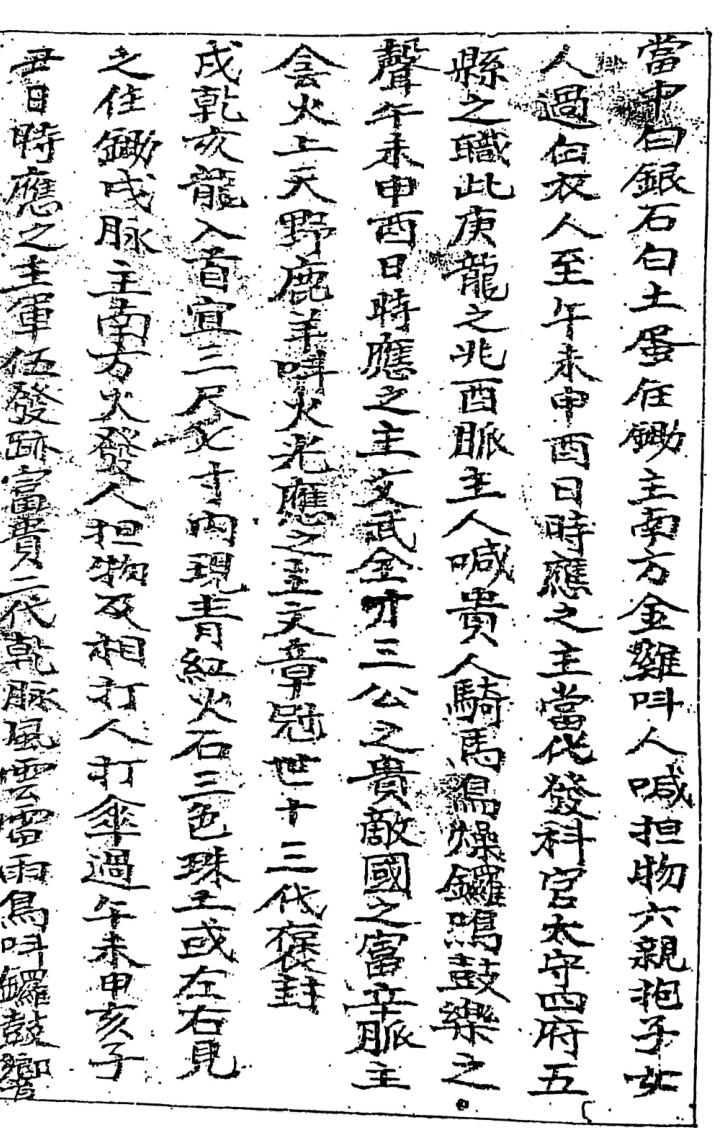 當中白銀石白土蛋住鋤主南方金雞叫人喊担物六親抱子女
人過白衣人至午未申酉日時應之主當代發科官太守四府五
縣之職此庚龍之兆酉脈主人喊貴人騎馬鳥燥鑼鳴鼓樂之
聲午未申酉日時應之主文武全才三公之貴敵國之富辛脈主
会火上天野鹿羊叫火光應之主文章冠世十三代褒封
戌乾亥龍入首宜三尺七寸內現青紅火石三色珠土或左右見
之住鋤戌脉主南方火發人担物及相打人打傘過午未申亥子
丑日時應之主軍伍發跡富貴二代乾脉風雲雷雨鳥叫鑼鼓響